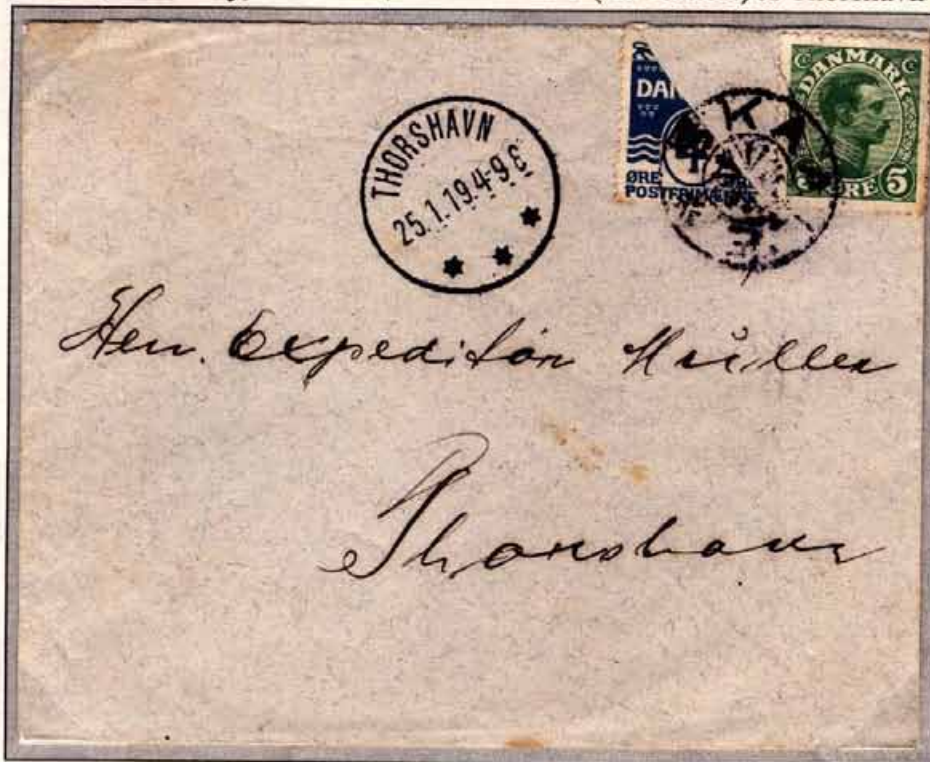 THORSHAVN
25.1.19.4-9E
DAN
4
ØRE
POSTFRIM
KA
DANMARK
ØRE 5
Herr. Expeditör Müller
Thorshavn